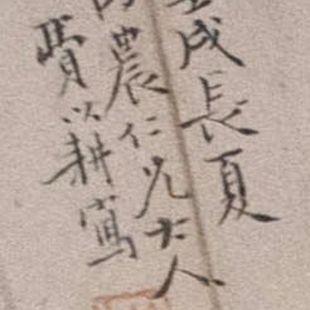 成長夏
農仁兄大人
黄以耕寫